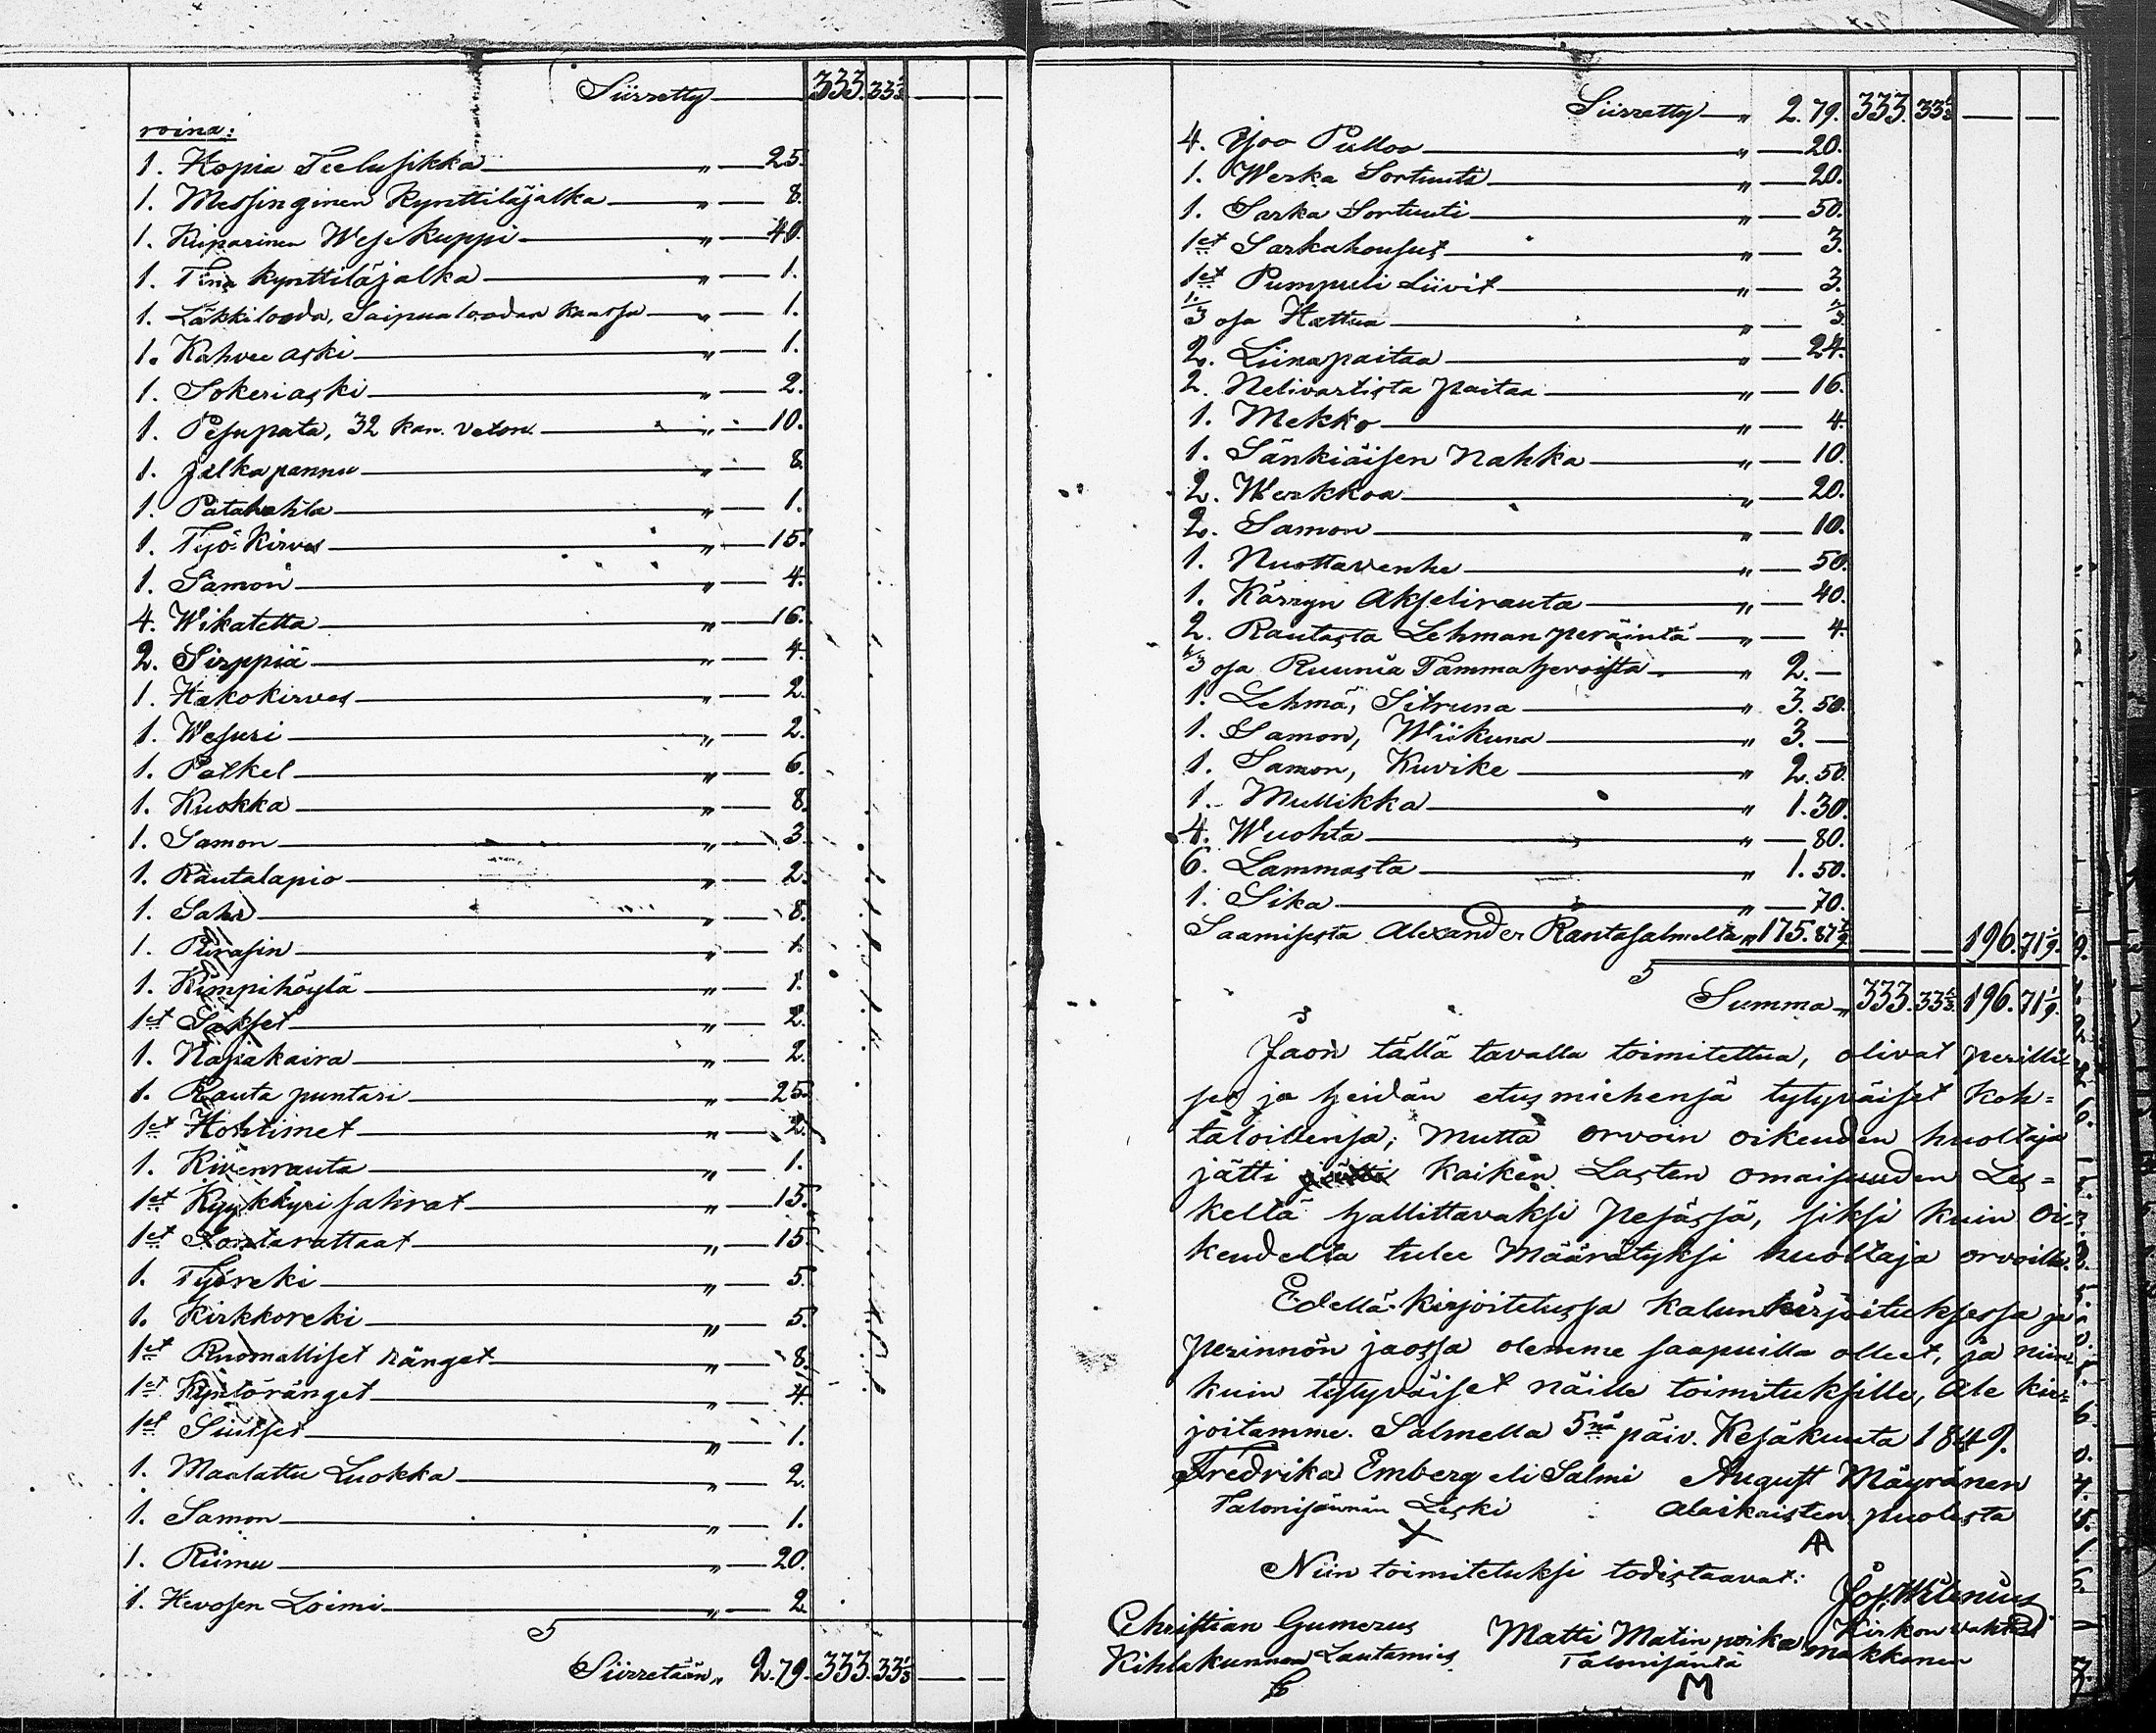 Siirretty — 333. 33⅓ — —
roina:
1. Hopia Teelusikka — " — 25.
1. Messinginen Kynttiläjalka — " — 8.
1. Kuparinen Wesikuppi — " — 40.
1. Tina kynttiläjalka — " — 1.
1. Läkkilooda, Saipualoodan kanssa — " — 1.
1. Kahvee aski — " — 1.
1. Sokeriaski — " — 2.
1. Pesupata, 32 kan. veton. — " — 10.
1. Jalkapannu — " — 8.
1. Patahahla — " — 1.
1. Työ-Kirves — " — 15.
1. Samon — " — 4.
4. Wikatetta — " — 16.
2. Sirppiä — " — 4.
1. Hakokirves — " — 2.
1. Wesuri — " — 2.
1. Petkel — " — 6.
1. Kuokka — " — 8.
1. Samon — " — 3.
1. Rautalapio — " — 2.
1. Saha — " — 8.
1. Purasin — " — 1.
1. Kimpihöylä — " — 1.
1et Sakset — " — 2.
1. Napakaira — " — 2.
1. Rauta puntari — " — 25.
1et Hohtimet — " — 2.
1. Kivenrauta — " — 1.
1et Kyykkyri sahrat — " — 15.
1et Sontarattaat — " — 15.
1. Työreki — " — 5.
1. Kirkkoreki — " — 5.
1et Ruomalliset ränget — " — 8.
1et Kyntöränget — " — 4.
1et Suitset — " — 1.
1. Maalattu Luokka — " — 2.
1. Samon — " — 1.
1. Riimu — " — 20.
1. Hevosen Loimi — " — 2.
Siirretään " 2. 79. 333. 33⅓ — —
Siirretty — " 2. 79. 333. 33⅓ — —
4. Isoo Pulloo — " — 20.
1. Werka Sortuuti — " — 20.
1. Sarka Sortuuti — " — 50.
1et Sarkahousut — " — 3.
1et Pumpuli Liivit — " — 3.
⅓ osa Hattua — " — ⅔
2. Liinapaitaa — " — 24.
2. Nelivartista paitaa — " — 16.
1. Mekko — " — 4.
1. Sänkiäisen Nahka — " — 10.
2. Werkkoa — " — 20.
2. Samon — " — 10.
1. Nuottavenhe — " — 50.
1. Kärryn Akselirauta — " — 40.
2. Rautasta Lehman peräintä — " — 4.
⅓ osa Ruunia Tammahevoista — " 2. —
1. Lehmä, Sitruna — " 3. 50.
1. Samon, Wiikuna — " 3. —
1. Samon, Kuvike — " 2. 50.
1. Mullikka — " 1. 30.
4. Wuohta — " — 80.
6. Lammasta — " 1. 50.
1. Sika — " — 70.
Saamisesta Alexander Rantasalmelta " 175. 87 — — 196. 71 1/9.
Summa " 333. 33⅓ 196. 71 1/9.
Jaon tällä tavalla toimitettua, olivat perilli-
set ja heidän etusmiehensä tytyväiset koh=
taloillensa; mutta orvoin oikeuden huoltaja
jätti kaiken Lasten omaisuuden Les=
kellä hallittavaksi pesässä, siksi kuin oi-
keudelta tulee määrätyksi huoltaja orvoille.
Edellä-kirjoitetussa kalunkirjoituksessa ja
perinnön jaossa olemme saapuilla olleet, ja niin-
kuin tytyväiset näille toimituksille, Ale kir-
joitamme. Salmella 5nä päiv. Kesäkuuta 1849.
Fredrika Emberg eli Salmi August Mäyränen
Talonisännän Leski Alaikaisten puolesta
Niin toimitetuksi todistaavat:
Christian Gumerus Matti Matin poika Makkonen Kirkon vahti
Kihlakunnan Lautamies Talonisäntä
M